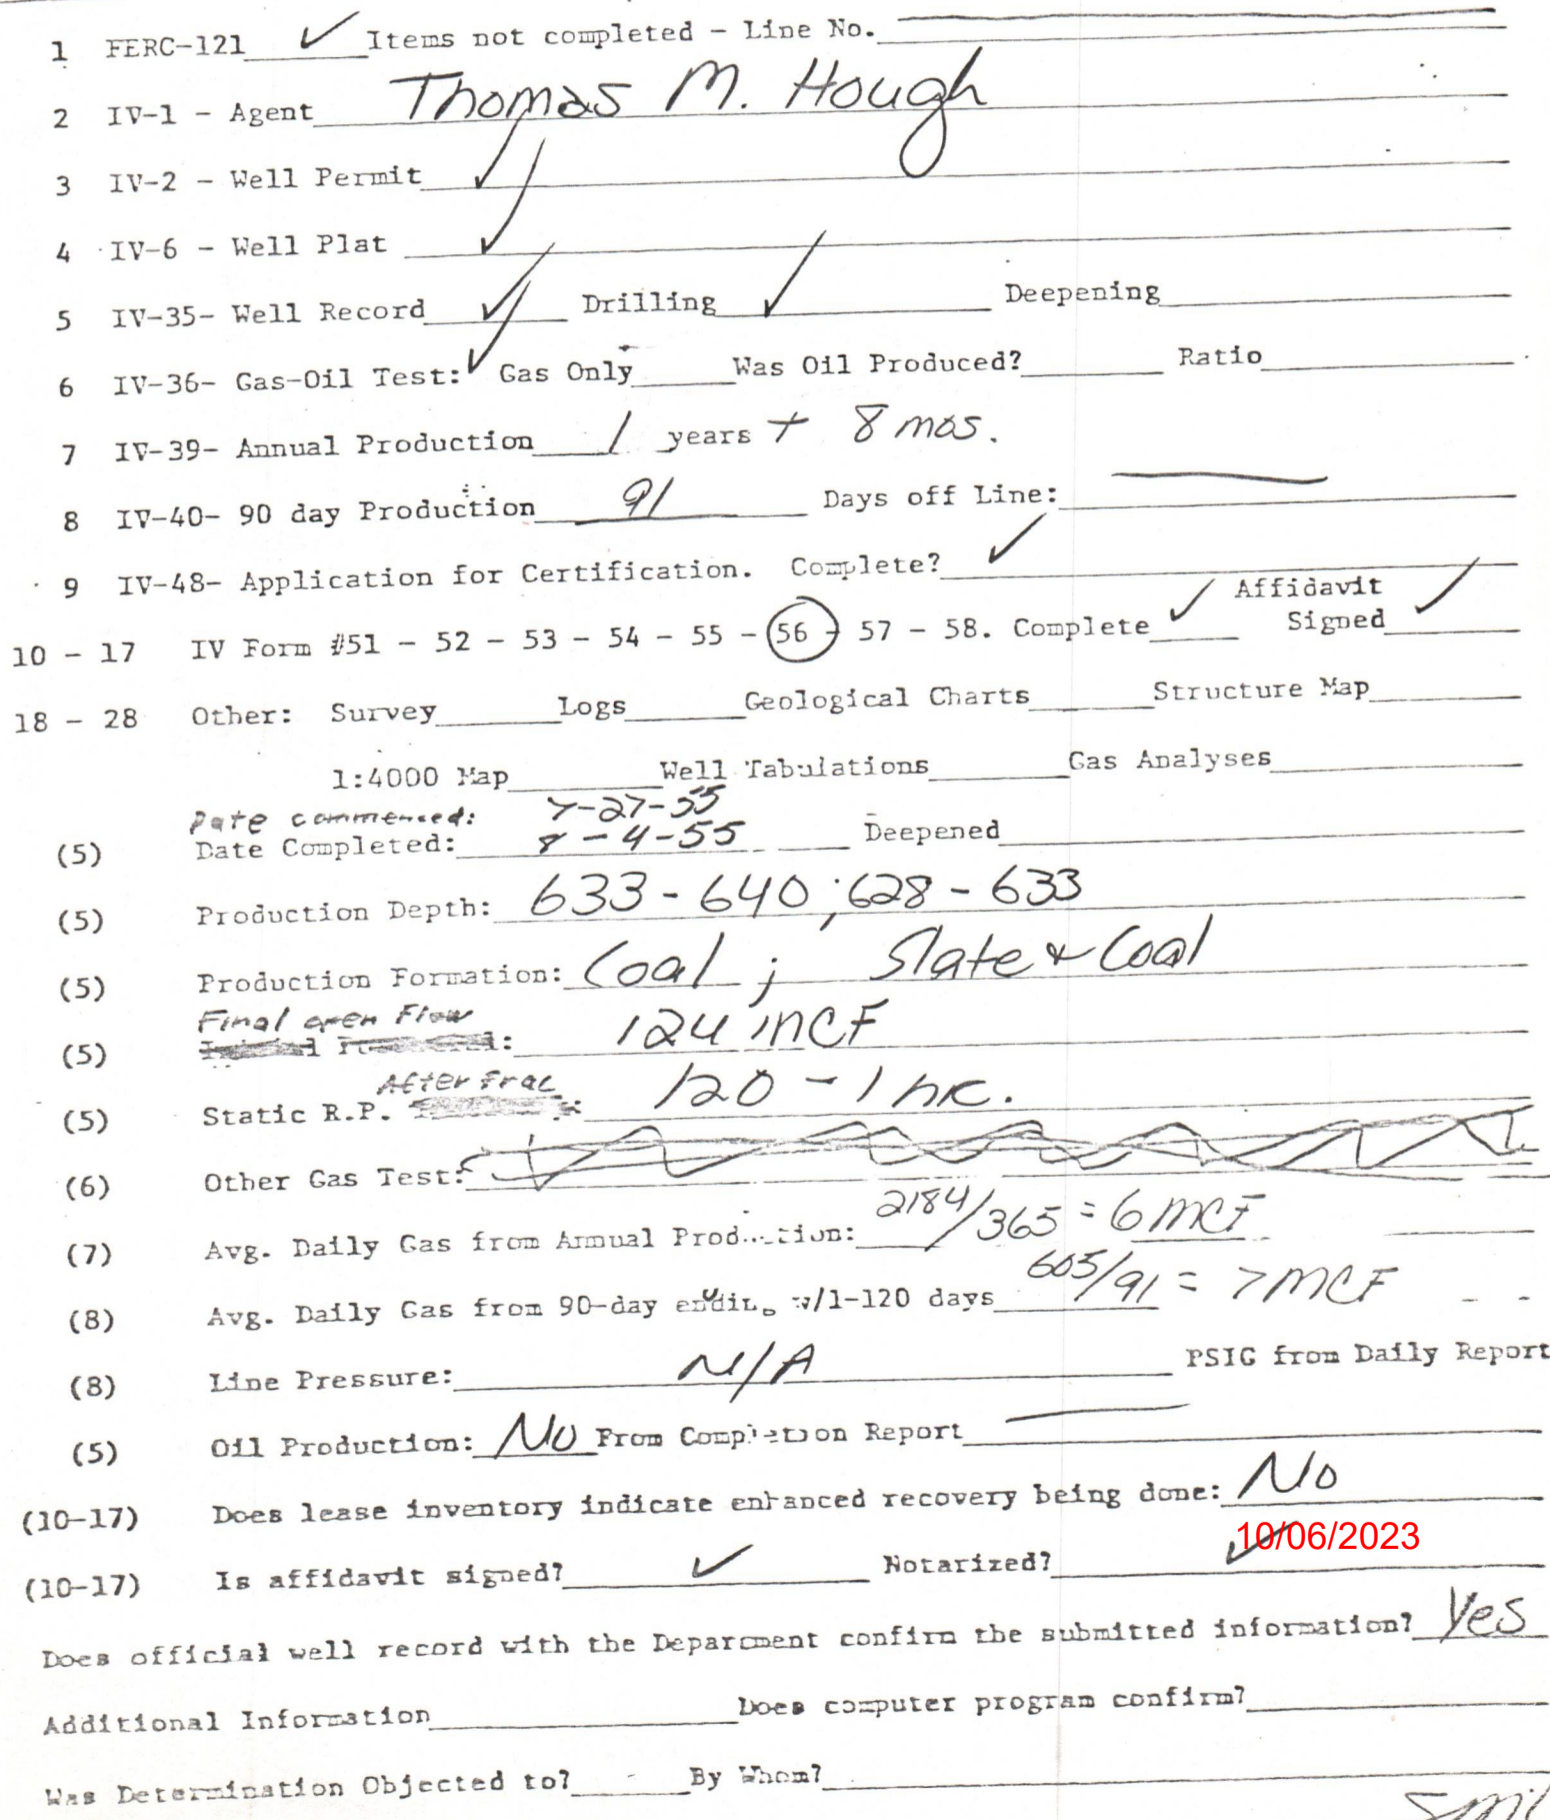 1 FERC-121 ✓ Items not completed - Line No.
2 IV-1 - Agent Thomas M. Hough
3 IV-2 - Well Permit ✓
4 IV-6 - Well Plat ✓
5 IV-35- Well Record ✓ Drilling ✓ Deepening
6 IV-36- Gas-Oil Test: ✓ Gas Only Was Oil Produced? Ratio
7 IV-39- Annual Production 1 years + 8 mos.
8 IV-40- 90 day Production 91 Days off Line:
9 IV-48- Application for Certification. Complete? ✓
10 - 17 IV Form #51 - 52 - 53 - 54 - 55 - 56 - 57 - 58. Complete ✓ Affidavit Signed ✓
18 - 28 Other: Survey Logs Geological Charts Structure Map
1:4000 Map Well Tabulations Gas Analyses
Date commenced: 7-27-55
(5) Date Completed: 8-4-55 Deepened
(5) Production Depth: 633-640; 628-633
(5) Production Formation: Coal; Slate & Coal
Final open Flow
(5) 124 MCF
(5) Static R.P. After Frac 120 - 1 hr.
(6) Other Gas Test:
(7) Avg. Daily Gas from Annual Production: 2184/365 = 6 MCF
(8) Avg. Daily Gas from 90-day ending w/1-120 days 605/91 = 7 MCF
(8) Line Pressure: N/A PSIG from Daily Report
(5) Oil Production: No From Completion Report
(10-17) Does lease inventory indicate enhanced recovery being done: No
10/06/2023
(10-17) Is affidavit signed? ✓ Notarized? ✓
Does official well record with the Department confirm the submitted information? Yes
Additional Information Does computer program confirm?
Was Determination Objected to? By Whom?